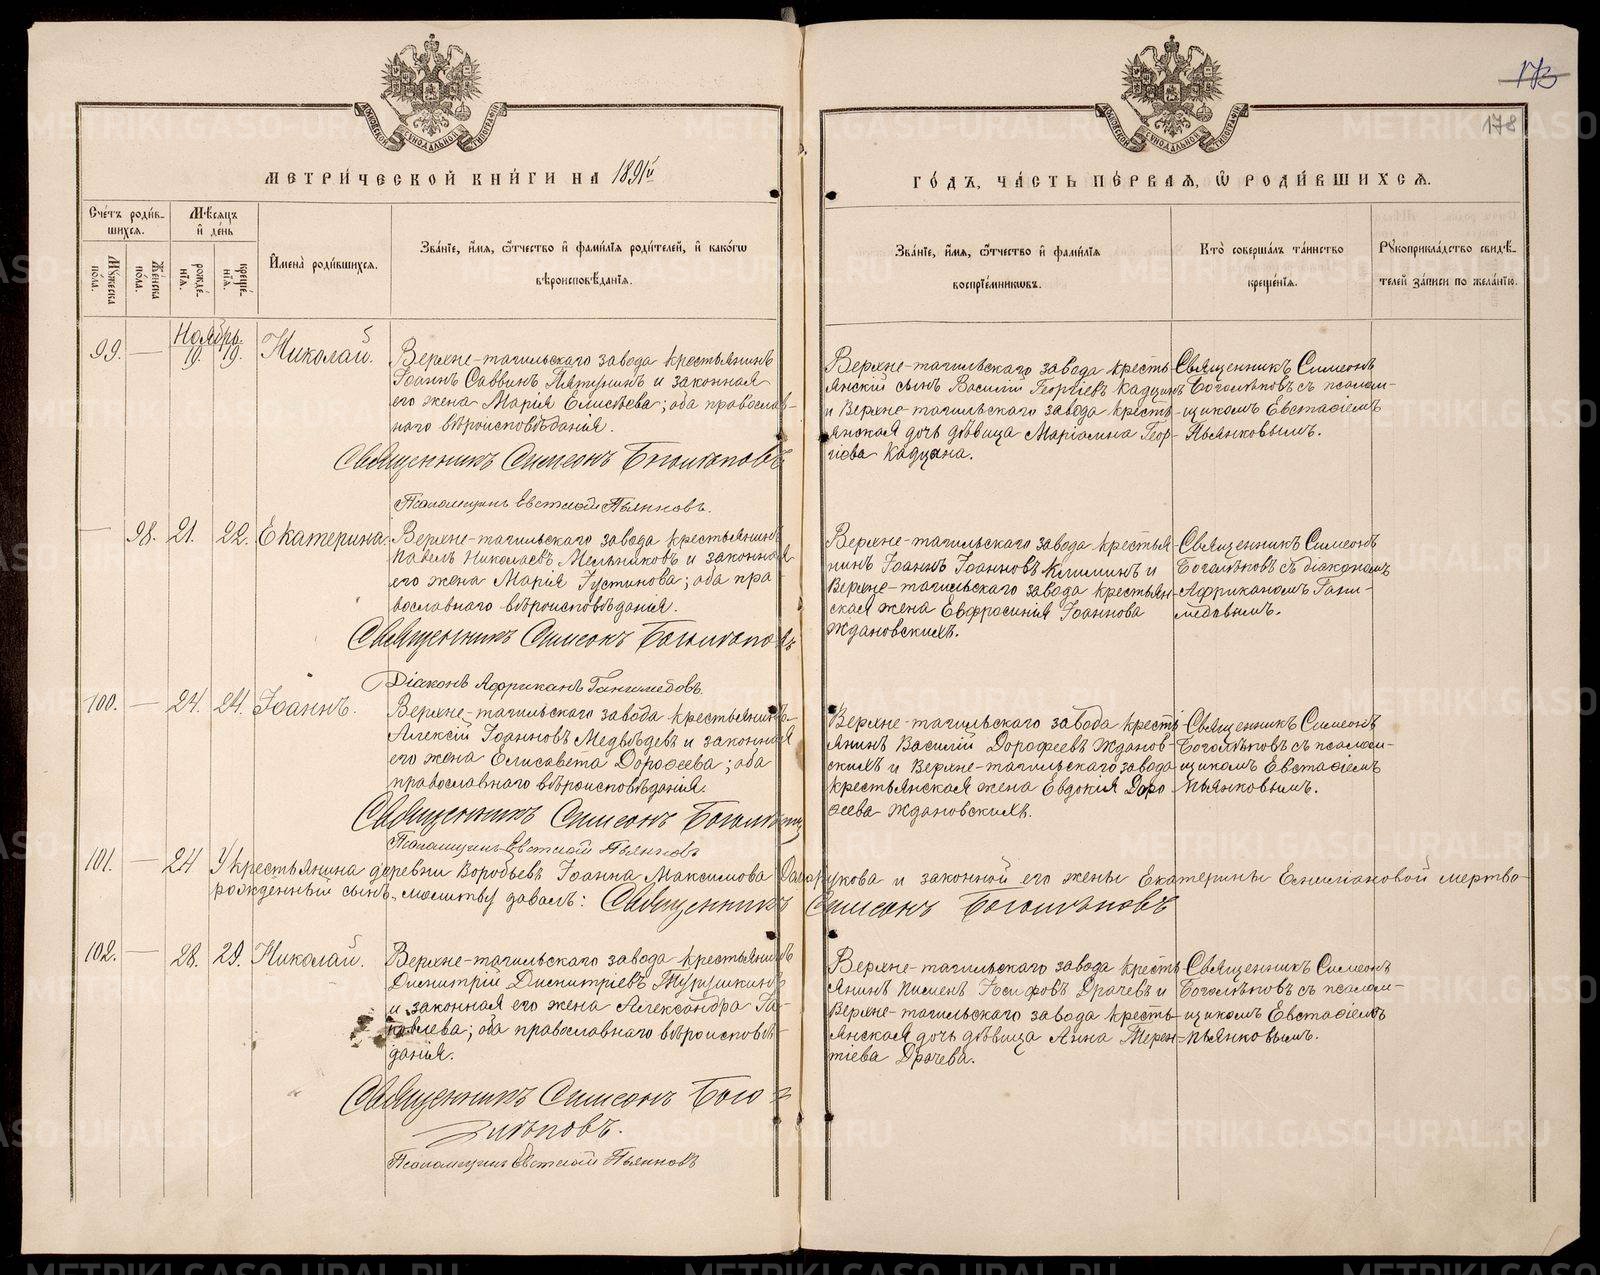 173
178
МЕТРИ́ЧЕСКОЙ КНИ́ГИ НА 1891й
ГО́ДЪ, ЧА́СТЬ ПЕ́РВАЯ, Ѽ РОДИ́ВШИХСЯ.
Сче́тъ роди́в-
шихся.
Мѣсяцъ
и де́нь
Мужеска по́ла.
Же́нска по́ла.
рожде́нїя.
креще́нїя.
Имена̀ роди́вшихся.
Зва́нїе, и́мя, ѻ҆́тчество и фами́лїя роди́телей, и како́гѡ
вѣроисповѣ́данїя.
Зва́нїе, и́мя, ѻ҆́тчество и фами́лїя
воспрїе́мникѡвъ.
Кто̀ соверша́лъ та́инство
креще́нїя.
Рукоприкла́дство свидѣ́-
телей за́писи по жела́нїю.
Ноябрь.
99. — 19. 19. Николай.
Верхне-тагильскаго завода крестьянинъ
Іоаннъ Саввинъ Пятунинъ и законная
его жена Марія Елисѣева; оба православ-
наго вѣроисповѣданія.
Священникъ Симеонъ Боголѣповъ
Псаломщикъ Евстаѳій Пьянковъ.
Верхне-тагильскаго завода кресть-
янскій сынъ Василій Георгіевъ Кадцинъ
и Верхне-тагильскаго завода кресть-
янская дочь дѣвица Маріамна Геор-
гіева Кадцина.
Священникъ Симеонъ
Боголѣповъ съ псалом-
щикомъ Евстаѳіемъ
Пьянковымъ.
— 98. 21. 22. Екатерина.
Верхне-тагильскаго завода крестьянинъ
Павелъ Николаевъ Мельниковъ и законная
его жена Марія Іустинова; оба пра-
вославнаго вѣроисповѣданія.
Священникъ Симеонъ Боголѣповъ
Діаконъ Африканъ Ганимедовъ.
Верхне-тагильскаго завода крестья-
нинъ Іоаннъ Іоанновъ Климинъ и
Верхне-тагильскаго завода крестьян-
ская жена Евфросинія Іоаннова
Ждановскихъ.
Священникъ Симеонъ
Боголѣповъ съ діакономъ
Африканомъ Гани-
медовымъ.
100. — 24. 24. Іоаннъ.
Верхне-тагильскаго завода крестьянинъ
Алексій Іоанновъ Медвѣдевъ и законная
его жена Елисавета Дороѳеева; оба
православнаго вѣроисповѣданія.
Священникъ Симеонъ Боголѣповъ
Псаломщикъ Евстаѳій Пьянковъ
Верхне-тагильскаго завода кресть-
янинъ Василій Дорофеевъ Жданов-
скихъ и Верхне-тагильскаго завода
крестьянская жена Евдокія Доро-
ѳеева Ждановскихъ.
Священникъ Симеонъ
Боголѣповъ съ псалом-
щикомъ Евстаѳіемъ
Пьянковымъ.
101. — 24 У крестьянина деревни Воробьевъ Іоанна Максимова и законной его жены Екатерины Емиліановой мертво-
рожденный сынъ, молитву давалъ: Священникъ Симеонъ Боголѣповъ
102. — 28. 29. Николай.
Верхне-тагильскаго завода крестьянинъ
Димитрій Димитріевъ Турушкинъ
и законная его жена Александра Іа-
ковлева; оба православнаго вѣроисповѣ-
данія.
Священникъ Симеонъ Бого-
лѣповъ.
Псаломщикъ Евстаѳій Пьянковъ
Верхне-тагильскаго завода кресть-
янинъ Пименъ Іосифовъ Драчевъ и
Верхне-тагильскаго завода кресть-
янская дочь дѣвица Анна Терен-
тіева Драчева.
Священникъ Симеонъ
Боголѣповъ съ псалом-
щикомъ Евстаѳіемъ
Пьянковымъ.